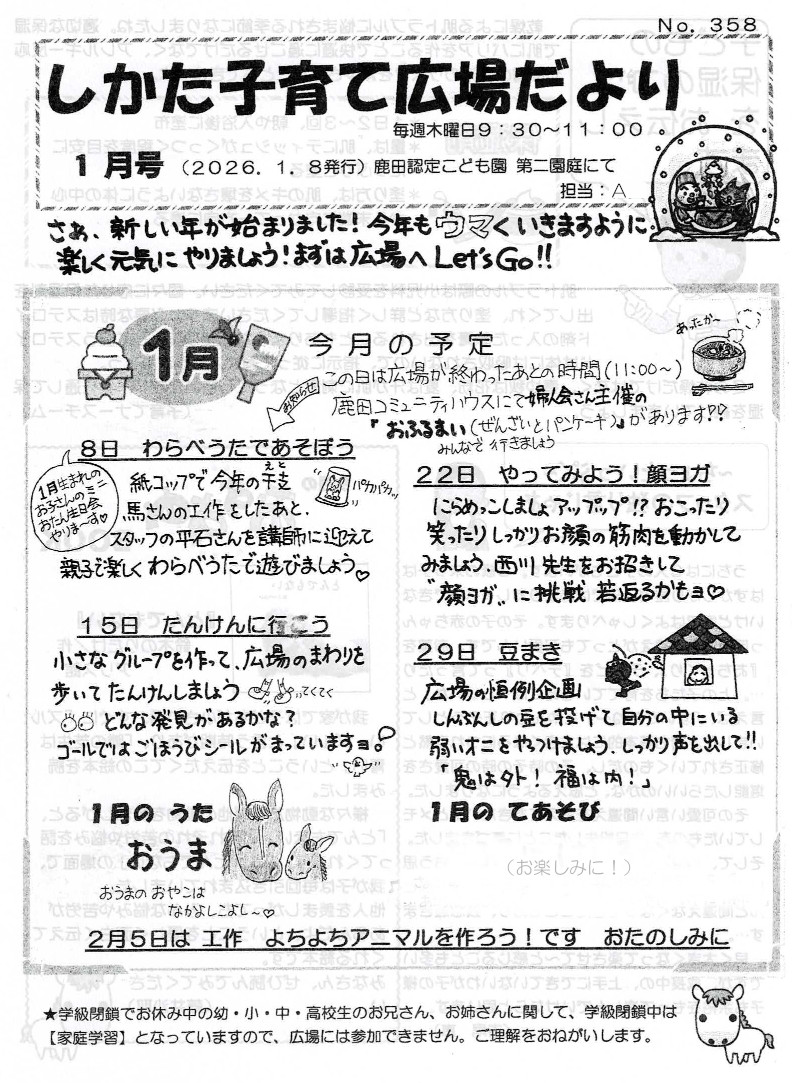 No. 358
しかた子育て広場だより
毎週木曜日9：30～11：00
1月号 （2026．1．8発行）鹿田認定こども園 第二園庭にて
担当：A
さぁ、新しい年が始まりました！今年もウマくいきますように
楽しく元気にやりましょう！まずは広場へLet's Go!!
1月 今月の予定
あったか～
お知らせ
この日は広場が終わったあとの時間（11:00～）
鹿田コミュニティハウスにて婦人会さん主催の
『おふるまい（ぜんざいとパンケーキ）』があります!?
みんなで行きましょう
8日 わらべうたであそぼう
1月生まれの
お子さんのミニ
おたん生日会
やりま～す♡
紙コップで今年の干支
えと
馬さんの工作をしたあと、
パカパカッ
スタッフの平石さんを講師に迎えて
親子で楽しくわらべうたで遊びましょう♡
15日 たんけんに行こう
小さなグループを作って、広場のまわりを
歩いてたんけんしましょう
てくてく
どんな発見があるかな？
ゴールではごほうびシールがまっていますョ。
22日 やってみよう！顔ヨガ
にらめっこしましょアップップ!?おこったり
笑ったりしっかりお顔の筋肉を動かして
みましょう。西川先生をお招きして
"顔ヨガ"に挑戦 若返るかもョ♡
29日 豆まき
広場の恒例企画
しんぶんしの豆を投げて自分の中にいる
弱いオニをやっつけましょう。しっかり声を出して!!
「鬼は外！福は内！」
1月の うた
おうま
おうまの おやこは
なかよしこよし～♡
1月の てあそび
（お楽しみに！）
2月5日は 工作 よちよちアニマルを作ろう！です おたのしみに
★学級閉鎖でお休み中の幼・小・中・高校生のお兄さん、お姉さんに関して、学級閉鎖中は
【家庭学習】となっていますので、広場には参加できません。ご理解をおねがいします。